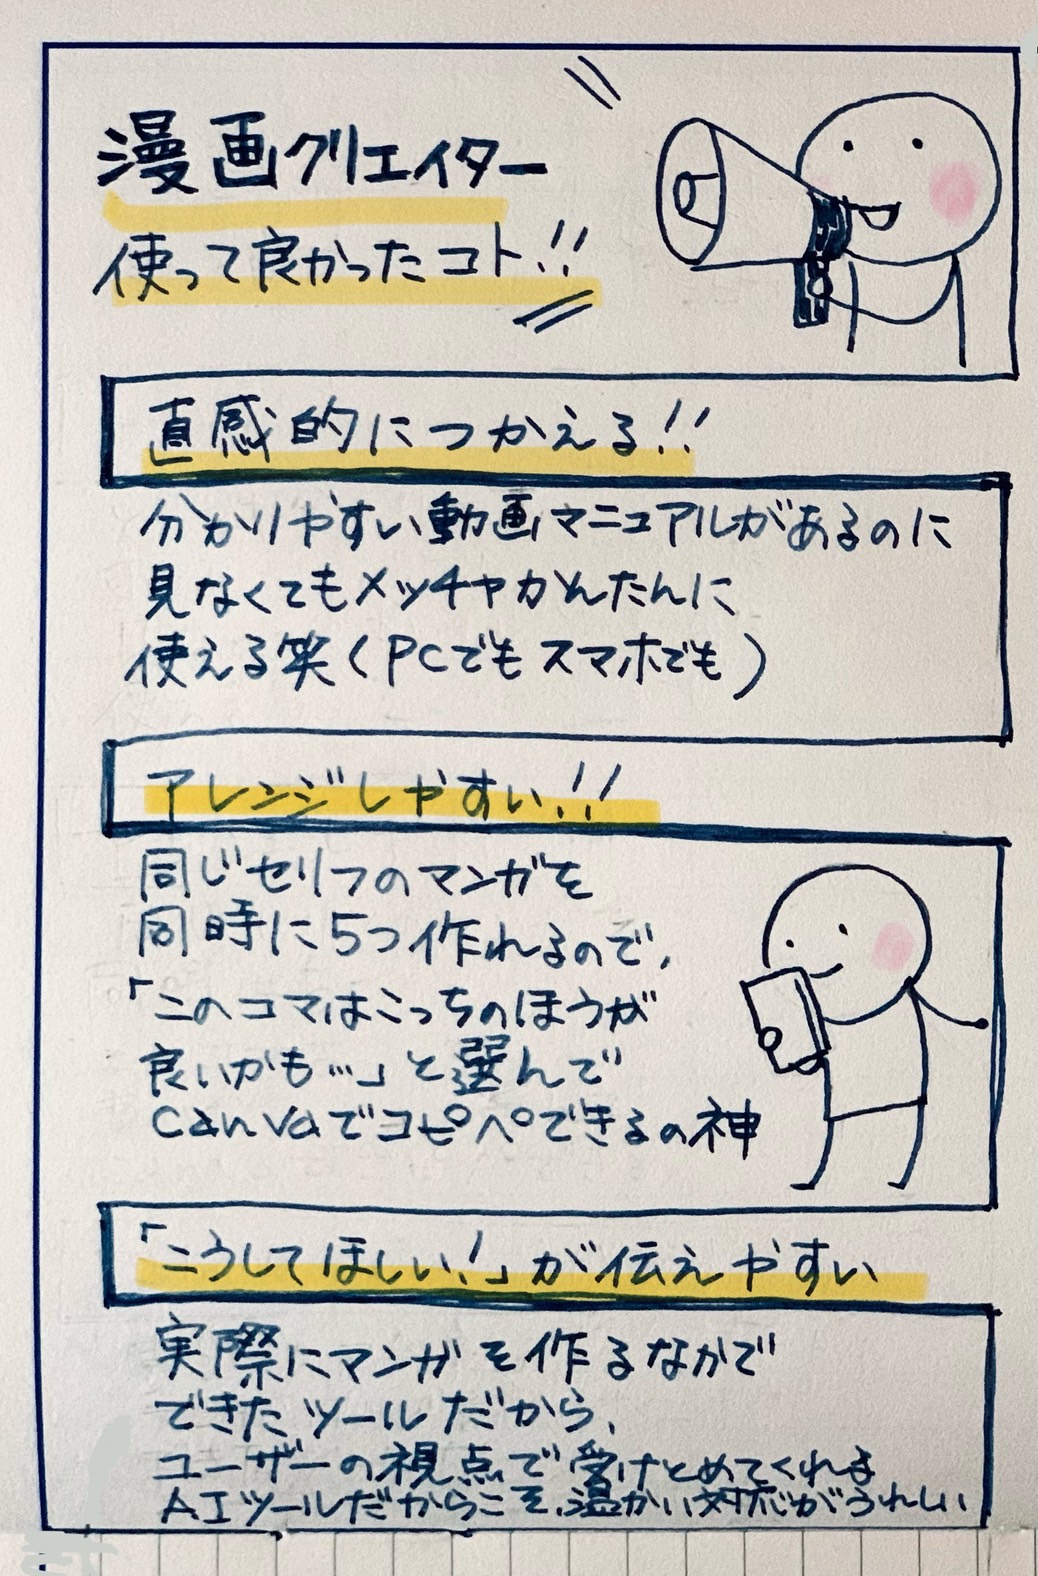 漫画クリエイター
使って良かったコト!!
直感的につかえる!!
分かりやすい動画マニュアルがあるのに
見なくてもメッチャかんたんに
使える笑(PCでもスマホでも)
アレンジしやすい!!
同じセリフのマンガを
同時に5つ作れるので、
「このコマはこっちのほうが
良いかも…」と選んで
Canvaでコピペできるの神
「こうしてほしい!」が伝えやすい
実際にマンガを作るなかで
できたツールだから、
ユーザーの視点で受けとめてくれる
AIツールだからこそ、温かい対応がうれしい